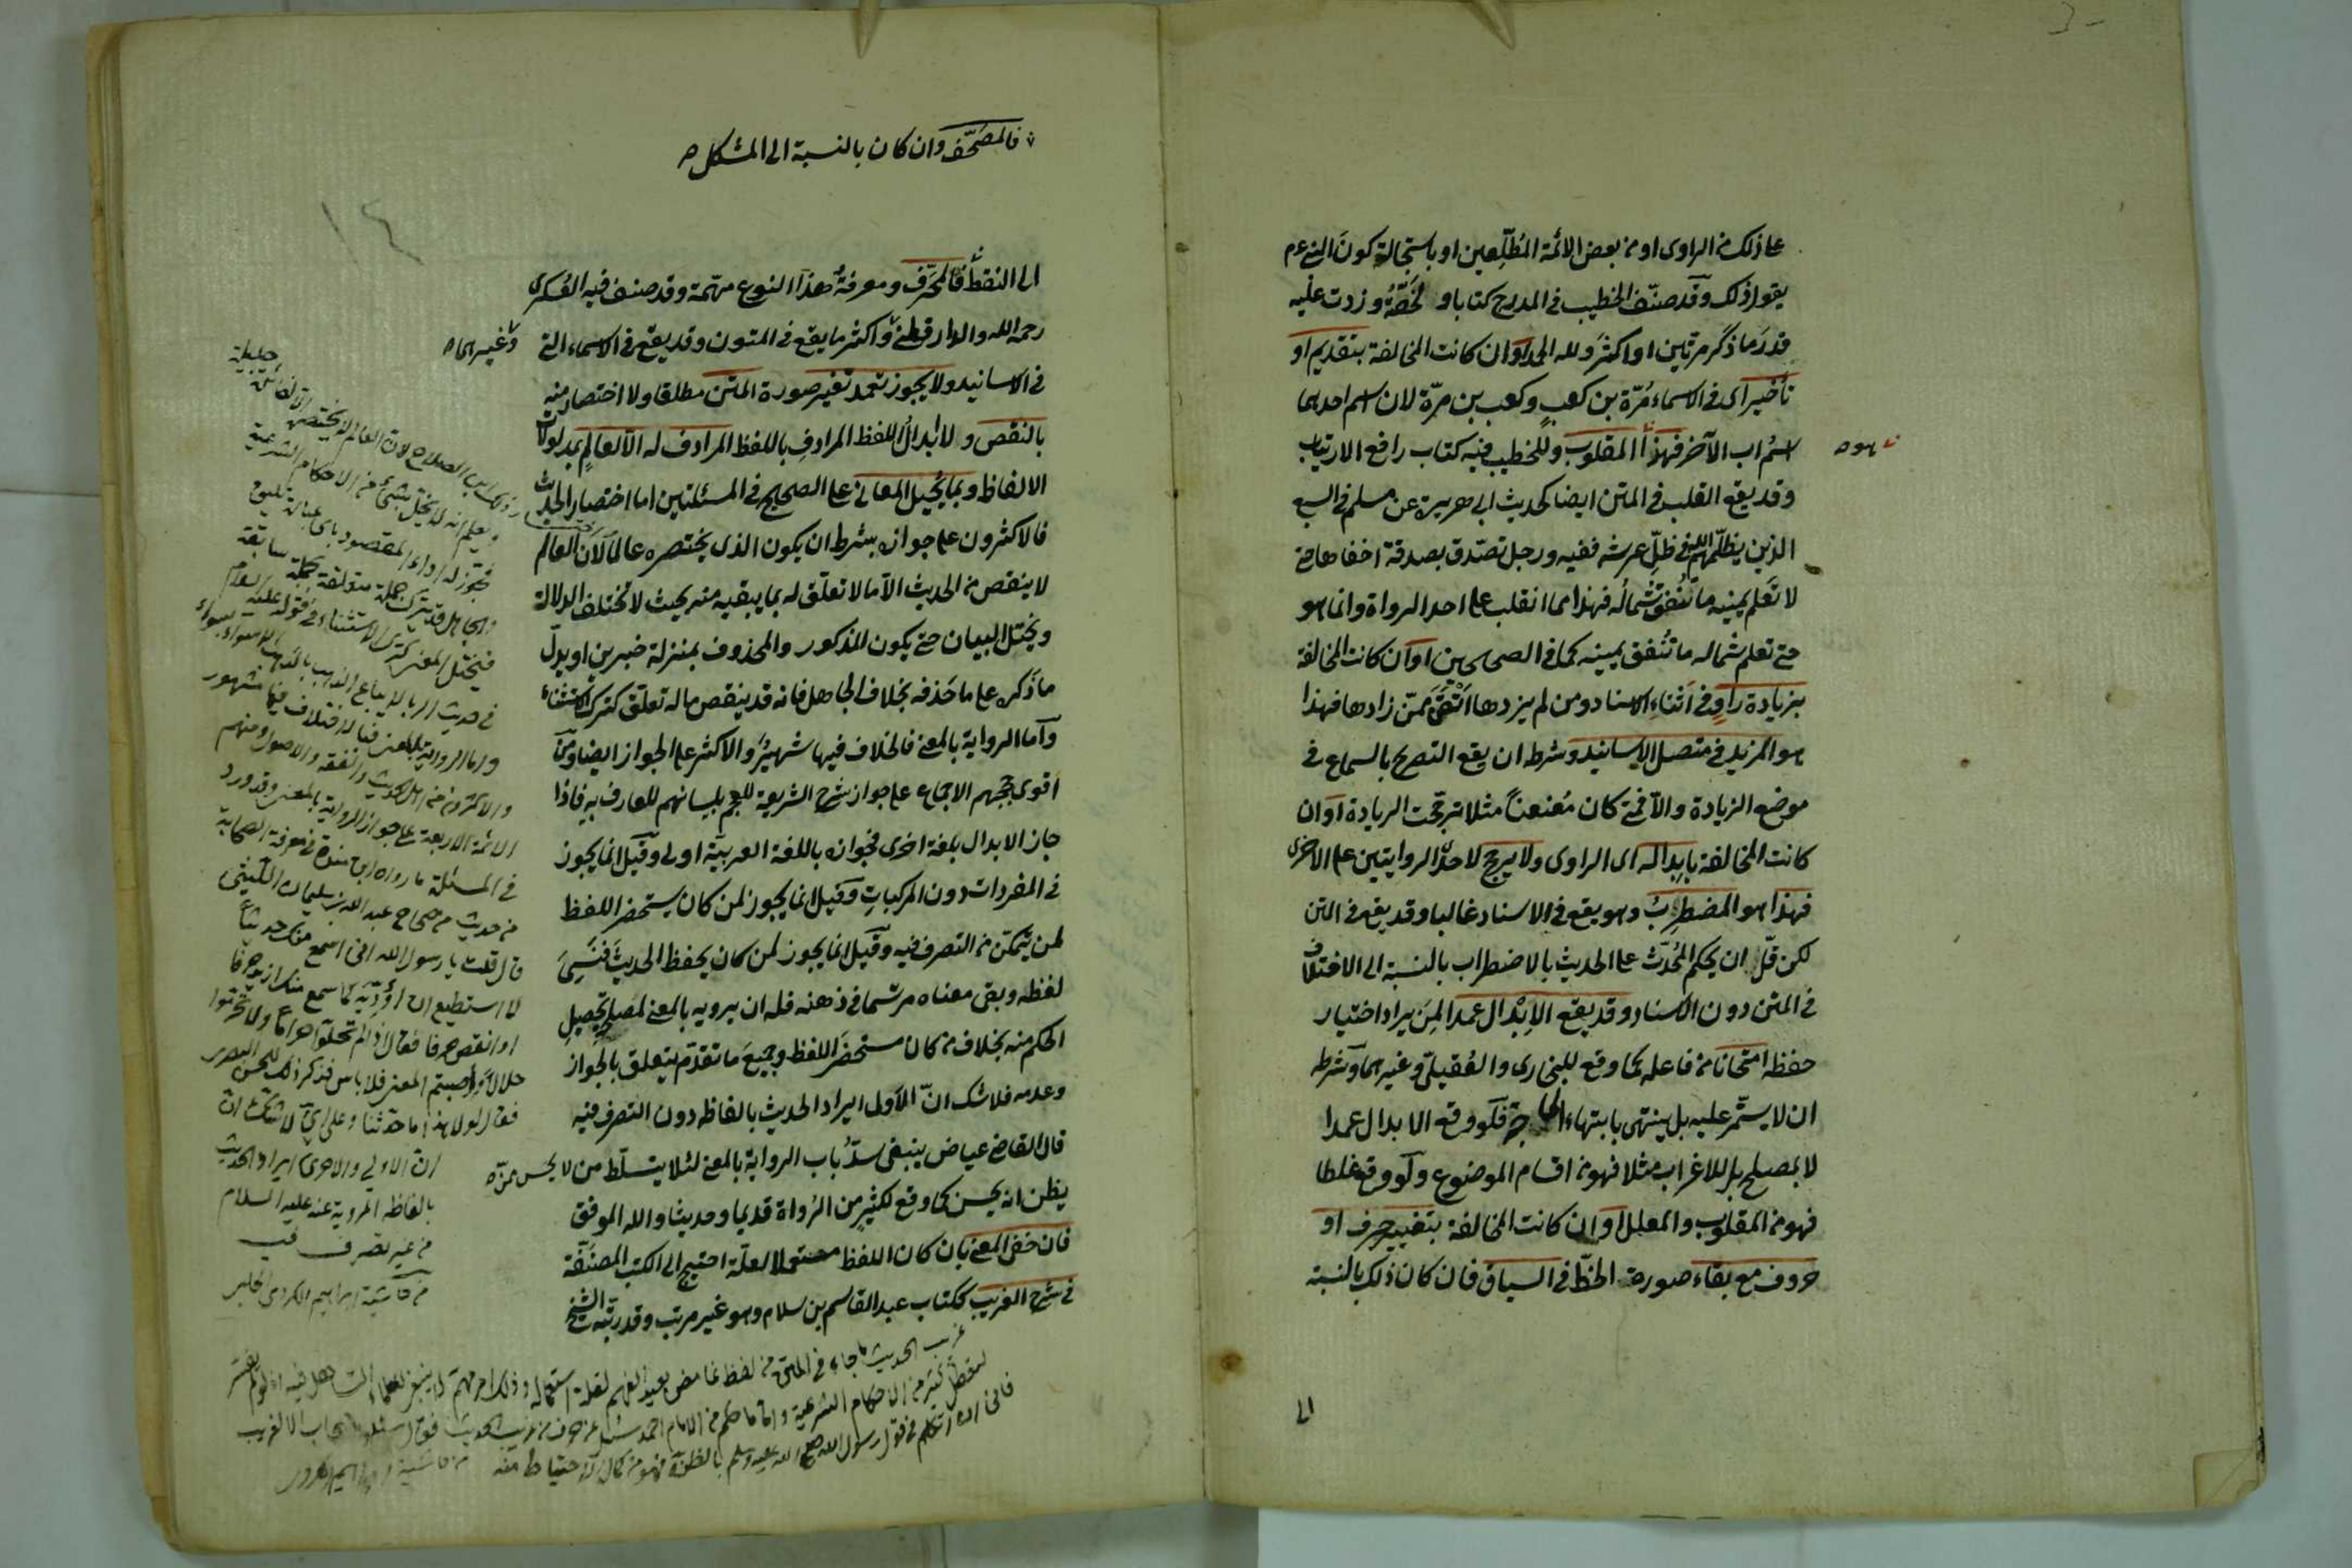 على ذلك من الراوى او من بعض الائمة المُطّلِعين او باستحالة كون النبى عم
يقول ذلك وقد صنّف الخطيب فى المدرج كتابا ولخّصتُه وزدت عليه
قدرَ ما ذكر مرتين او اكثرَ ولله الحمد او ان كانت المخالفة بتقديم او
تأخير اى فى الاسماء مُرّة بن كعب وكعب بن مرّة لان اسم احدهما
اسمُ اب الآخر فهذا المقلوب وللخطيب فيه كتاب رافع الارتياب
هو ص
وقد يقع القلب فى المتن ايضا كحديث ابى هريرة عن مسلم فى السبع
الذين يظلّهم الله فى ظلّ عرشه ففيه ورجل تصدّق بصدقة اخفاها حتى
لا تعلم يمينه ما تُنفق شمالُه فهذا مما انقلب على احد الرواة وانما هو
حتى تعلم شماله ما تُنفق يمينه كما فى الصحيحين او ان كانت المخالفة
بزيادة راوٍ فى اثناءِ الاسناد ومن لم يزدها اَتْقَنَ ممّن زادها فهذا
هو المزيد فى متصل الاسانيد وشرطه ان يقع التصريح بالسماع فى
موضع الزيادة والّا فمتى كان مُعنعناً مثلا ترجّحت الزيادة او ان
كانت المخالفة بابداله اى الراوى ولا يرجح لاحدى الروايتين على الاخرى
فهذا هو المضطرِبُ وهو يقع فى الاسناد غالبا وقد يقع فى المتن
لكن قلّ ان يحكم المُحدّث على الحديث بالاضطراب بالنسبة الى الاختلاف
فى المتن دون الاسناد وقد يقع الاِبْدال عمدا لِمن يراد اختيار
حفظه امتحانا من فاعله كما وقع للبخارى والعُقيلىّ وغيرهما وشرطه
ان لا يستمّر عليه بل ينتهى بانتهاء الحاجة فلو وقع الابدال عمدا
لا لمصلحة بل للاغراب مثلا فهو من اقسام الموضوع ولو وقع غلطا
فهو من المقلوب والمعلل او ان كانت المخالفة بتغيير حرف او
حروف مع بقاء صورة الخطّ فى السياق فان كان ذلك بالنسبة
الى
فالمصحّف وان كان بالنسبة الى الشكل ص
١٤
الى النقط فالمحَرّف ومعرفة هذا النوع مهمّة وقد صنف فيه العسكرى
رحمه الله والدارقطنى واكثر ما يقع فى المتون وقد يقع فى الاسماء التى
وغيرهما ص
فى الاسانيد ولا يجوز تعمد تغير صورة المتن مطلقا ولا اختصار منه
بالنقص ولا ابدالُ اللفظ المرادفِ باللفظ المرادف له الا لعالم بمدلولات
الالفاظ وبما يُحيل المعانى على الصحيح فى المسئلتين اما اختصار الحديث
فالاكثرون على جوازه بشرط ان يكون الذى يختصره عالما لان العالم
لا ينقص من الحديث الّا ما لا تعلّق له بما يبقيه منه بحيث لا تختلف الدلالة
ويختل البيان حتى يكون المذكور والمحذوف بمنزلة خبرين او يدل
ما ذكره على ما حَذفه بخلاف الجاهل فانه قد ينقص ما له تعلّق كترك الاستثناء
وامّا الرواية بالمعنى فالخلاف فيها شهيرٌ والاكثر على الجواز ايضا ومن
اقوى حججهم الاجماع على جواز شرح الشريعة للعجم بلسانهم للعارف به فاذا
جاز الابدال بلغة اخرى فجوازه باللغة العربيّة اولى وقيل انما يجوز
فى المفردات دون المركباتِ وقيل انما يجوز لمن كان يستحضر اللفظ
لمن يتمكّن من التصرف فيه وقيل انما يجوز لمن كان يحفظ الحديث فنَسِىَ
لفظه وبقى معناه مرتسما فى ذهنه فله ان يرويه بالمعنى لمصلحةِ تحصيلِ
الحكم منه بخلاف من كان مستحضرَ اللفظ وجميعَ ما تقدّم يتعلق بالجواز
وعدمه فلا شك انّ الاولى ايراد الحديث بالفاظه دون التصرف فيه
قال القاضى عياض ينبغى سدُّ باب الرواية بالمعنى لئلا يتسلّط من لا يحسن ممن ص
يظن انه يحسن كما وقع لكثيرٍ من الرُواة قديما وحديثا والله الموفق
فان خفى المعنى بان كان اللفظ مستعملا لعلّة احتيج الى الكتب المصنّفة
فى شرح الغريب ككتاب عبد القاسم بن سلام وهو غير مرتب وقد رتّبه الشيخ
ويعلم انه لا يختل بشئ من الاحكام الشرعية
فيجوز له اداء المقصود باى عبارة تليق
فى حديث الربا لا يباع الذهب بالذهب الا سواء بسواء
واما الرواية بالمعنى فالاختلاف فيها مشهور
والاكثرون من اهل الحديث والفقه والاصول ومنهم
الائمة الاربعة على جواز الرواية بالمعنى وقد ورد
فى المسئلة ما رواه ابن مندة فى معرفة الصحابة
من حديث عبد الله بن سليمان الليثى
قال قلت يا رسول الله انى اسمع منك حديثا
لا استطيع ان اؤدّيه كما سمع منك ازيد حرفا
او انقص حرفا فقال اذا لم تحلّوا حراما ولا تحرّموا
حلالا واصبتم المعنى فلا باس فذكر ذلك للحسن البصرى
فقال لولا هذا ما حدثنا وعلى اىٍّ لا شك ان
ان الاولى والاحرى ايراد الحديث
بالفاظه المروية عنه عليه السلام
من غير تصرف فيه
من حاشية ابراهيم الكردى الحلبى
غريب الحديث ما جاء فى المتن من لفظ غامض بعيد الفهم لقلة استعماله
فانى اكره ان اتكلم فى قول رسول الله صلى الله عليه وسلم بالظن